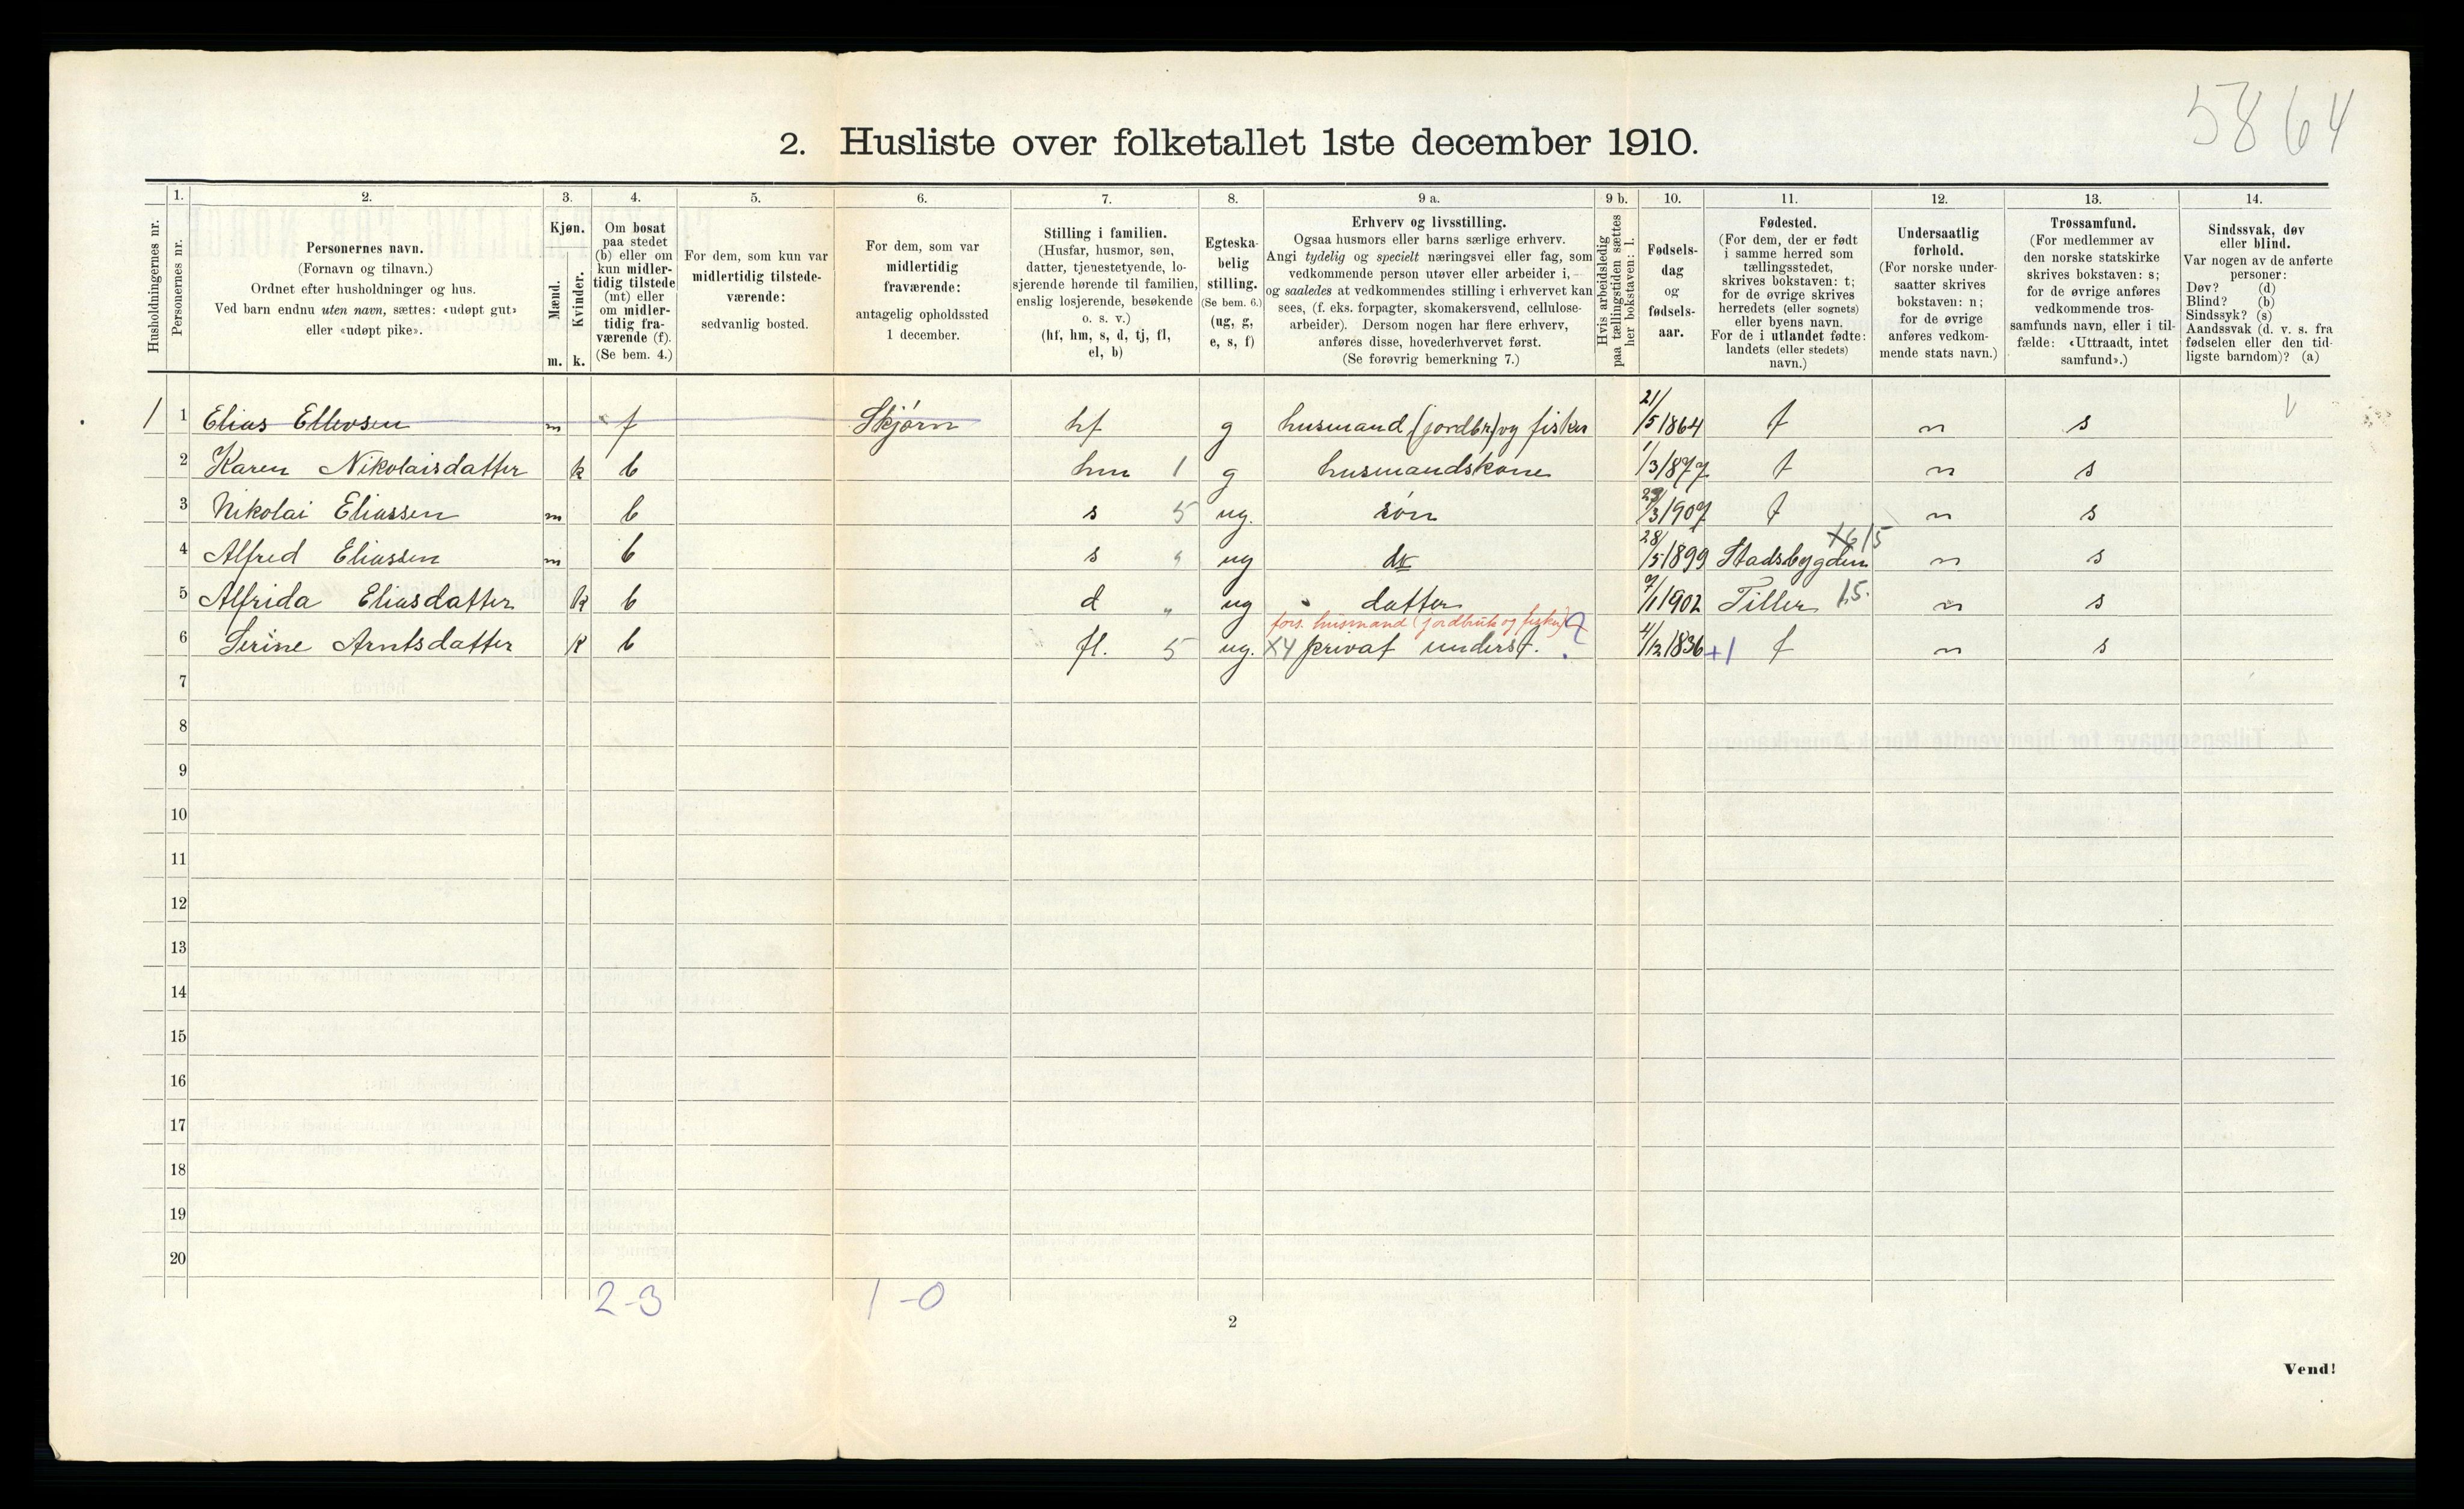 5864
2. Husliste over folketallet 1ste december 1910.
Husholdningernes nr.
1.
Personernes nr.
2.
Personernes navn.
(Fornavn og tilnavn.)
Ordnet efter husholdninger og hus.
Ved barn endnu uten navn, sættes: «udøpt gut»
eller «udøpt pike».
3.
Kjøn.
Mænd.
Kvinder.
m. k.
4.
Om bosat
paa stedet
(b) eller om
kun midler-
tidig tilstede
(mt) eller
om midler-
tidig fra-
værende (f).
(Se bem. 4.)
5.
For dem, som kun var
midlertidig tilstede-
værende:
sedvanlig bosted.
6.
For dem, som var
midlertidig
fraværende:
antagelig opholdssted
1 december.
7.
Stilling i familien.
(Husfar, husmor, søn,
datter, tjenestetyende, lo-
sjerende hørende til familien,
enslig losjerende, besøkende
o. s. v.)
(hf, hm, s, d, tj, fl,
el, b)
8.
Egteska-
belig
stilling.
(Se bem. 6.)
(ug, g,
e, s, f)
9 a.
Erhverv og livsstilling.
Ogsaa husmors eller barns særlige erhverv.
Angi tydelig og specielt næringsvei eller fag, som
vedkommende person utøver eller arbeider i,
og saaledes at vedkommendes stilling i erhvervet kan
sees, (f. eks. forpagter, skomakersvend, cellulose-
arbeider). Dersom nogen har flere erhverv,
anføres disse, hovederhvervet først.
(Se forøvrig bemerkning 7.)
9 b.
Hvis arbeidsledig
paa tællingstiden sættes
her bokstaven: l.
10.
Fødsels-
dag
og
fødsels-
aar.
11.
Fødested.
(For dem, der er født
i samme herred som
tællingsstedet,
skrives bokstaven: t;
for de øvrige skrives
herredets (eller sognets)
eller byens navn.
For de i utlandet fødte:
landets (eller stedets)
navn.)
12.
Undersaatlig
forhold.
(For norske under-
saatter skrives
bokstaven: n;
for de øvrige
anføres vedkom-
mende stats navn.)
13.
Trossamfund.
(For medlemmer av
den norske statskirke
skrives bokstaven: s;
for de øvrige anføres
vedkommende tros-
samfunds navn, eller i til-
fælde: «Uttraadt, intet
samfund».)
14.
Sindssvak, døv
eller blind.
Var nogen av de anførte
personer:
Døv? (d)
Blind? (b)
Sindssyk? (s)
Aandssvak (d. v. s. fra
fødselen eller den tid-
ligste barndom)? (a)
1 1 Elias Ellevsen m f Skjørn hf g husmand (jordbr) og fisker 21/5 1864 t n s
2 Karen Nikolaisdatter k b hm 1 g husmandskone 1/3 1877 t n s
3 Nikolai Eliassen m b s 5 ug. søn 29/3 1907 t n s
4 Alfred Eliassen m b s " ug do 28/5 1899 Stadsbygden 15 n s
5 Alfrida Eliasdatter k b d " ug datter 7/1 1902 Tiller 15. n s
fors. husmand (jordbruk og fisker) ?
6 Serine Arntsdatter k b fl. 5 ug. X4 privat underst. 4/2 1836 +1 t n s
7
8
9
10
11
12
13
14
15
16
17
18
19
20
2-3 1-0
2
Vend!